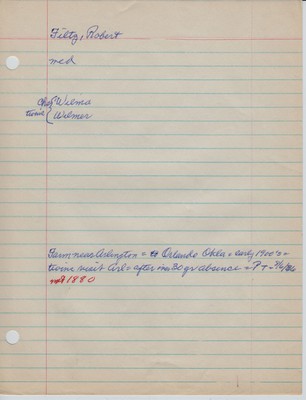 Filtz, Robert
med
Ch { Wilma
twins { Wilmer
Farm near Arlington = to Orlando Okla = early 1900's =
twins visit Arl = after in 30 yr absence = P T =
1880